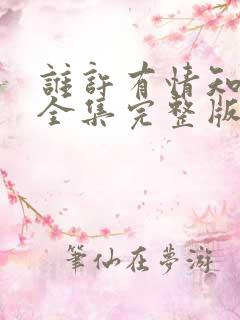 誰許有情知
全集完整版
筆仙在夢游